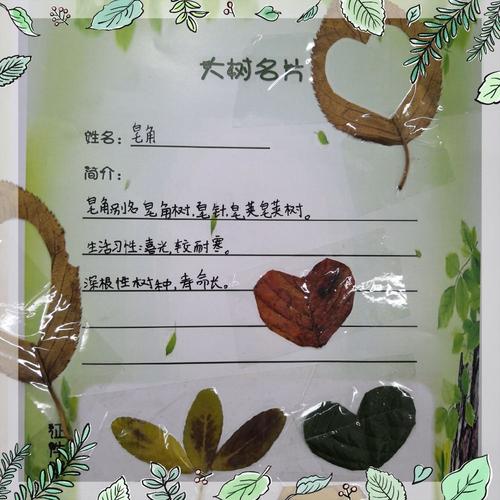 大树名片
姓名：皂角
简介：
皂角别名皂角树，皂针，皂荚皂荚树。
生活习性：喜光，较耐寒。
深根性树种，寿命长。